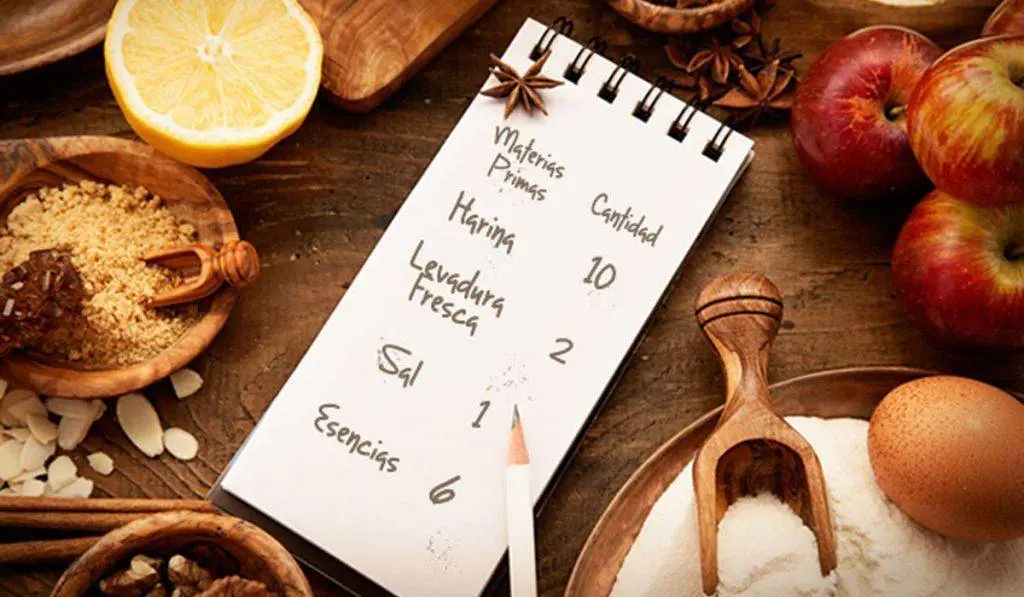 Materias
Primas
Cantidad
Harina
10
Levadura
Fresca
2
Sal
1
Esencias
6